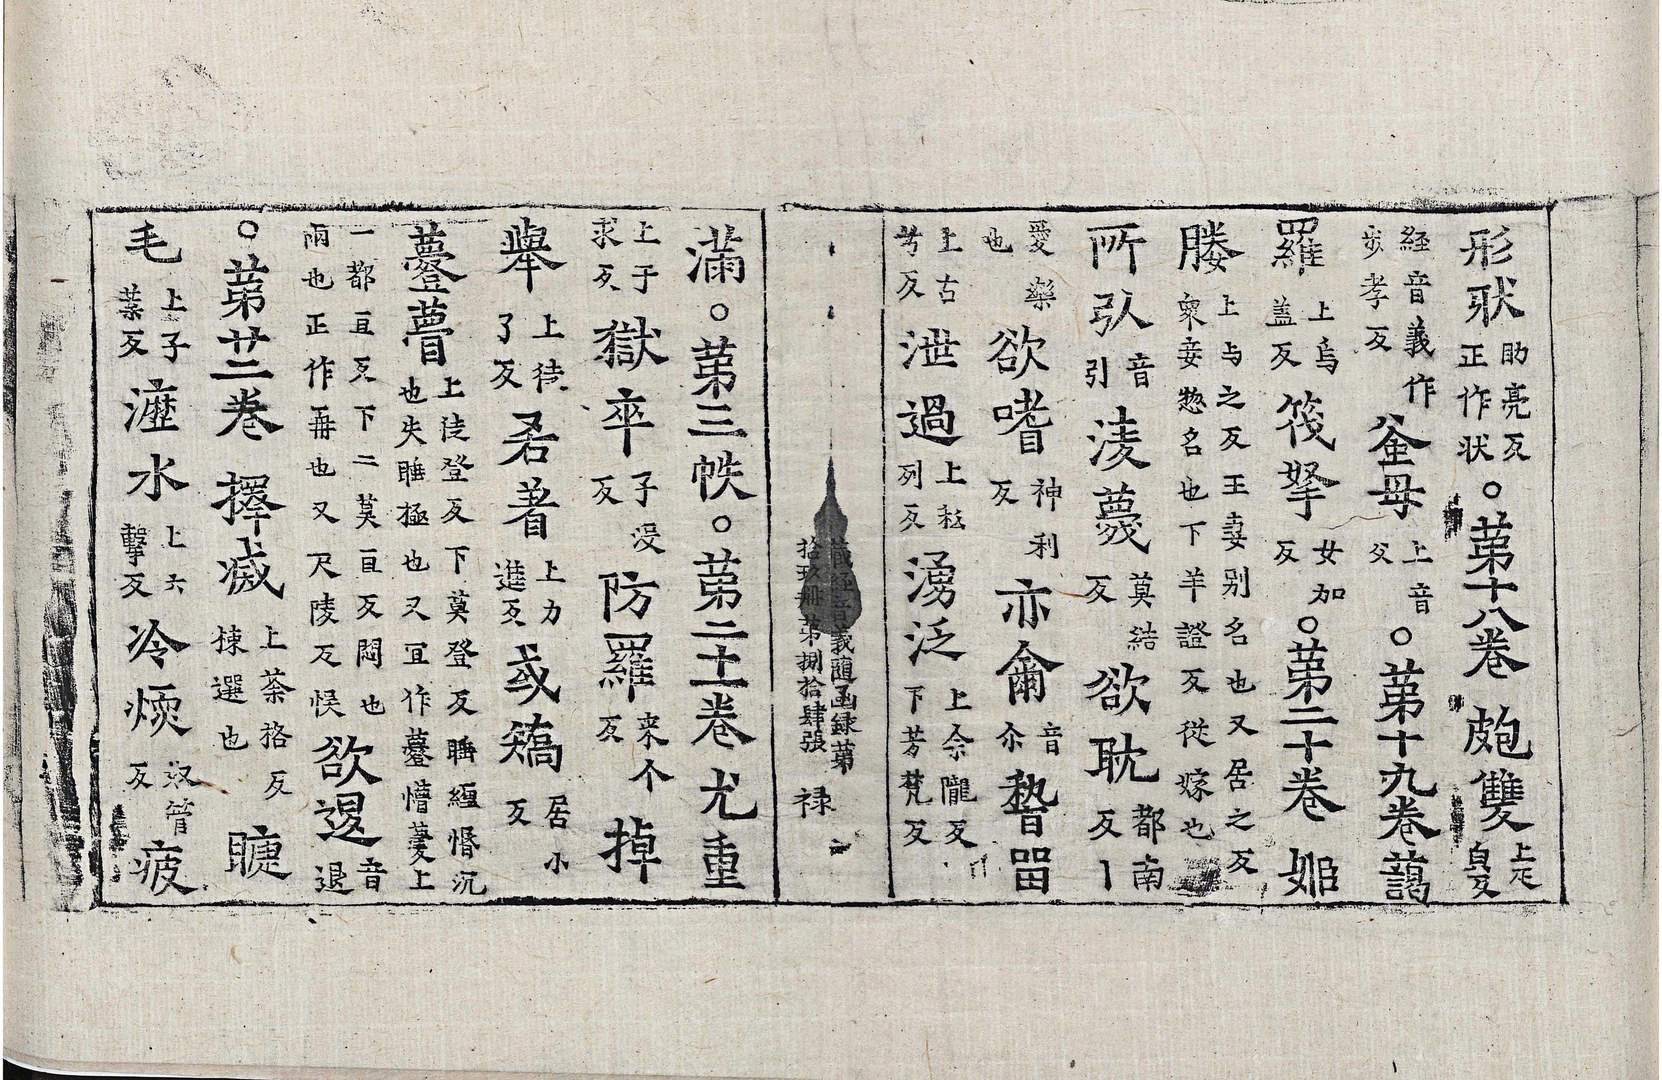 形狀助亮反正作状。苐十八卷 皰雙上疋皃反
経音義作步孝反 釜母上音父。苐十九卷 藹
羅上烏盖反 筏拏女加反。苐二十卷 姬
媵上与之反王妻别名也又居之反衆妾惣名也下羊證反従嫁也
所引音引 淩蔑莫結反 欲耽都南反丨
愛樂也 欲嗜神利反 亦龠音尒 暫㽞
上古芳反 泄過上私列反 湧泛上余隴反下芳梵反
蔵経音義隨函録苐拾玖冊苐捌拾肆張 禄
滿。苐三帙。苐二十一卷 尤重
上于求反 獄卒子没反 防羅来个反 掉
舉上徒了反 吝著上力進反 或矯居小反
薹瞢上徒登反下莫登反䏃䁅惛沉也失睡極也又冝作薹懵薆上
一都亘反下二莫亘反悶也兩也正作冓也又尺陵反悞 欲退音退
。苐廿二卷 擇滅上荼格反揀選也 睫
毛上子葉反 瀝水上六擊反 冷煗奴管反 疲